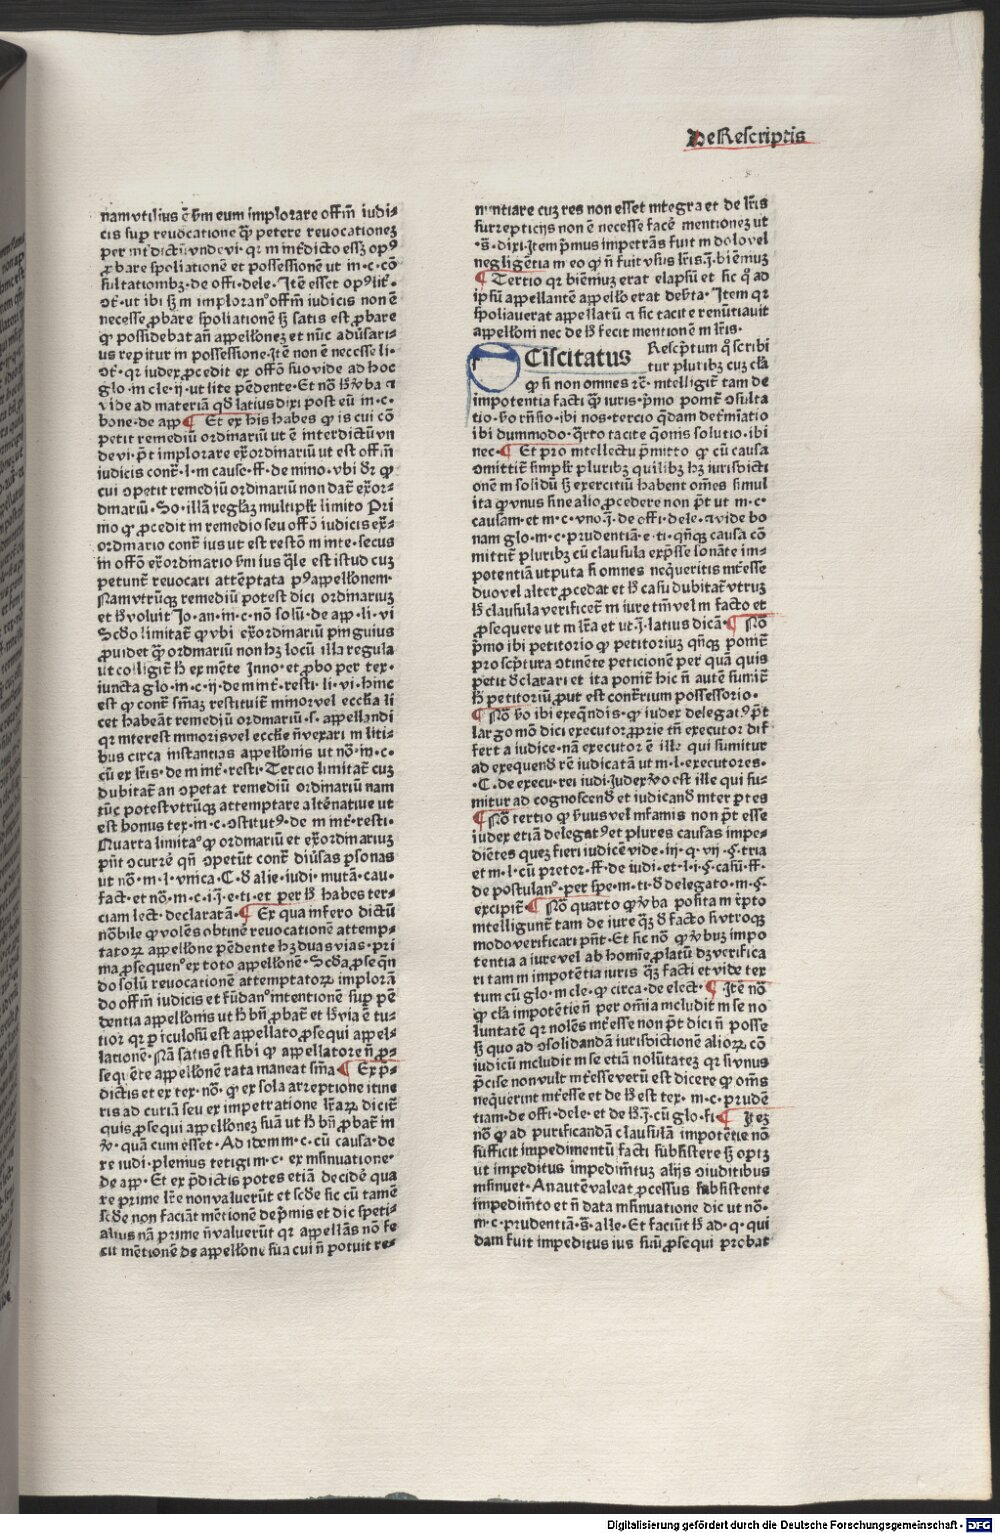 De Rescriptis
nam vtilius ē v̄m eum implorare offm̄ iudi⸗
cis sup̱ reuocatione qᷓ petere reuocationeꝫ
per int̄dictū vnde vi· qꝛ in int̄dicto essꝫ opꝰ
ꝓbare spoliationē et possessionē ut in·c·cō
sultationibꝫ·de offi·dele· Itē esset opꝰ lit̄·
ꝯt̄·ut ibi sꝫ in imploranꝰ offm̄ iudicis non ē
necesse ꝓbare spoliationē sꝫ satis est ꝓbare
qꝙ possidebat an̄ appellōneꝫ et nūc aduersari⸗
us reperitur in possessione· Itē non ē necesse li·
ꝯt̄·qꝛ iudex ꝓcedit ex offō suo vide ad hoc
glo·in cle·ij·ut lite pēdente· Et nō hꝫ v̄ba ⁊
vide ad materiā qđ latius dixi post eū in·c·
bone·de app̄ ¶ Et ex his habes ꝙ is cui cō
petit remediū ordinariū ut ē interdictū vn
de vi·p̄t implorare ex̄ordinariū ut est offm̄
iudicis cont̄·l·in cause·ff·de mino·vbi dr̄ ꝙ
cui ꝯpetit remediū ordinariū non dat̄ ex̄or⸗
dinariū· So·illā regłaꝫ multipłr limito Pri
mo ꝙ ꝓcedit in remedio seu offō iudicis ex̄⸗
ordinario cont̄ ius ut est restō in inte·secus
in offō ex̄ordinario v̄m ius qłe est istud cuꝫ
petunt̄ reuocari attēptata pꝰ appellōnem·
Nam vtrūqꝫ remediū potest dici ordinariuꝫ
et hđ voluit Jo·an·in·c·nō solū·de app·li·vi
Scđo limitat̄ ꝙ vbi ex̄ordinariū pinguius
ꝓuidet qᷓ ordinariū non hꝫ locū illa regula
ut colligit̄ h̄ ex mēte Inno·et ꝓbo per tex·
iuncta glo·in·c·ij·de in int̄·resti·li·vi·hinc
est ꝙ cont̄ sniaꝫ restituit̄ minor vel ecclia li
cet habeāt remediū ordinariū·s·appellandi
qꝛ interest minoris vel ecclie n̄ vexari in liti⸗
bus circa instantias appellōnis ut nō·in·c·
cū ex lr̄is·de in int̄·resti· Tercio limitat̄ cuꝫ
dubitat̄ an ꝯpetat remediū ordinariū nam
tūc potest vtrūqꝫ attemptare altēnatiue ut
est bonus tex·in·c·ꝯstitutꝰ·de in int̄·resti·
Quarta limitaꝰ ꝙ ordinariū et ex̄ordinariuꝫ
pn̄t ꝯcurrē qn̄ ꝯpetūt cont̄ diūsas p̱sonas
ut nō·in·l·vnica·C·đ alie·iudi·mutā·cau·
fact·et nō·in·c·i·j·e·ti·et per hđ habes ter⸗
ciam lect·declaratā· ¶ Ex qua infero dictū
nōbile ꝙ volēs obtinē reuocationē attemp⸗
tatoꝝ appellōne pēdente hꝫ duas vias·pri
ma ꝓsequenꝰ ex toto appellōnē· Scđa ꝓseqn̄
do solū reuocationē attemptatoꝝ implorā
do offm̄ iudicis et fūdanꝰ intentionē sup̱ pē
dentia appellōnis ut h̄ bn̄ ꝓbat̄ et hđ via ē tu⸗
tior qꝛ p̱iculosū est appellato ꝓsequi appel⸗
lationē· Nā satis est sibi ꝙ appellatore n̄ ꝓ⸗
sequēte appellōnē rata maneat sn̄ia ¶ Ex p̄⸗
dictis et ex tex·nō·ꝙ ex sola arreptione itine
ris ad curiā seu ex impetratione lr̄aꝝ dicit̄
quis ꝓsequi appellōneꝫ suā ut h̄ bn̄ ꝓbat̄ in
v̄·quā cum esset· Ad idem in·c·cū causa·de
re iudi·plenius tetigi in·c·ex insinuatione·
de app· Et ex p̄dictis potes etiā decidē qua
re prime lr̄e non valuerūt et scđe sic cū tamē
scđe non faciāt mētionē de p̄mis et dic speti⸗
alius nā prime n̄ valuerūt qꝛ appellās nō fe
cit mētionē de appellōne sua cui n̄ potuit re⸗
nuntiare cuꝫ res non esset integra et de lr̄is
surreptitijs non ē necesse facē mentioneꝫ ut
·s̄·dixi· Item p̄mus impetrās fuit in dolo vel
negligētia in eo ꝙ n̄ fuit vsus lr̄is·j·biēniuꝫ
¶ Tercio qꝛ biēniuꝫ erat elapsū et sic qͦ ad
ipsū appellantē appellō erat desꝭta· Item qꝛ
spoliauerat appellatū ⁊ sic tacite renūtiauit
appellōni nec de hđ fecit mentionē in lr̄is·
Ciscitatus Rescp̄tum qđ scribi
tur pluribꝫ cuꝫ clā
ꝙ si non omnes ⁊c̄· intelligit̄ tam de
impotentia facti qᷓ iuris·p̄mo ponit̄ ꝯsulta
tio·vo rn̄sio·ibi nos·tercio qđam det̄miatio
ibi dummodo·qr̄to tacite qōnis solutio·ibi
nec· ¶ Et pro intellectu p̄mitto ꝙ cū causa
ꝯmittit̄ simpłr pluribꝫ quilibꝫ hꝫ iurisdicti
onē in solidū sꝫ exercitiū habent oēs simul
ita ꝙ vnus sine alio ꝓcedere non p̄t ut in·c·
causam·et in·c·vno·j·de offi·dele·⁊ vide bo
nam glo·in·c·prudentiā·e·ti·qn̄qꝫ causa cō
mittit̄ pluribꝫ cū clausula exp̄sse sonāte im⸗
potentiā ut puta si omnes neq̄ueritis int̄esse
duo vel alter ꝓcedat et hđ casu dubitat̄ vtruꝫ
hđ clausula verificet̄ in iure tm̄ vel in facto et
ꝓsequere ut in lr̄a et ut·j·latius dicā· ¶ Nō
p̄mo ibi petitorio ꝙ petitoriuꝫ qn̄qꝫ ponit̄
pro scp̄tura ꝯtinēte peticionē per quā quis
petit declarari et ita ponit̄ hic n̄ autē sumit̄
h̄ petitoriū ꝓut est cont̄rium possessorio·
¶ Nō vo ibi exeqndis·ꝙ iudex delegatꝰ p̄t
largo mō dici executor ꝓprie tn̄ executor dif
fert a iudice·nā executor ē ille qui sumitur
ad exequenđ rē iudicatā ut in·l·executores·
·C·de execu·rei iudi· Judex vo est ille qui su⸗
mitur ad cognoscenđ et iudicanđ inter p̱tes
¶ Nō tertio ꝙ seruus vel infamis non p̄t esse
iudex etiā delegatꝰ et plures causas impe⸗
diētes quez fieri iudicē vide·iij·q·vij·§·tria
et in·l·cū pretor·ff·de iudi·et·l·i·§·casū·ff·
de postulanꝰ·per spe·in·ti·đ delegato·in·§·
excipit̄· ¶ Nō quarto ꝙ v̄ba posita in rēpto
intelligunt̄ tam de iure qᷓꝫ đ facto si vtroqꝫ
modo verificari pn̄t· Et sic nō ꝙ v̄buꝫ impo
tentia a iure vel ab homīe ꝓlatū dꝫ verifica
ri tam in impotētia iuris qᷓꝫ facti et vide tex
tum cū glo·in cle·ꝙ circa·de elect· ¶ Itē nō
ꝙ clā impotētie n̄ per omīa includit in se no
luntatē qꝛ nolēs int̄esse non p̄t dici n̄ posse
sꝫ quo ad ꝯsolidandā iurisdictionē alioꝝ cō
iudicū includit in se etiā nolūtateꝫ qꝛ si vnus
p̄cise non vult int̄esse verū est dicere ꝙ om̄s
neq̄uerint int̄esse et de hđ est tex·in·c·prudē
tiam·de offi·dele·et de hđ·j·cū glo·fi· ¶ Iteꝫ
nō ꝙ ad purificandā clausulā impotētie nō
sufficit impedimentū facti subsistere sꝫ oportꝫ
ut impeditus impedim̄tuꝫ alijs ꝯiuditibus
insinuet· An autē valeat ꝓcessus subsistente
impedim̄to et n̄ data insinuatione dic ut nō·
in·c·prudentiā·s̄·alle· Et faciūt hđ ad·q·qui
dam fuit impeditus ius suū ꝓsequi probat
Digitalisierung gefördert durch die Deutsche Forschungsgemeinschaft - DFG